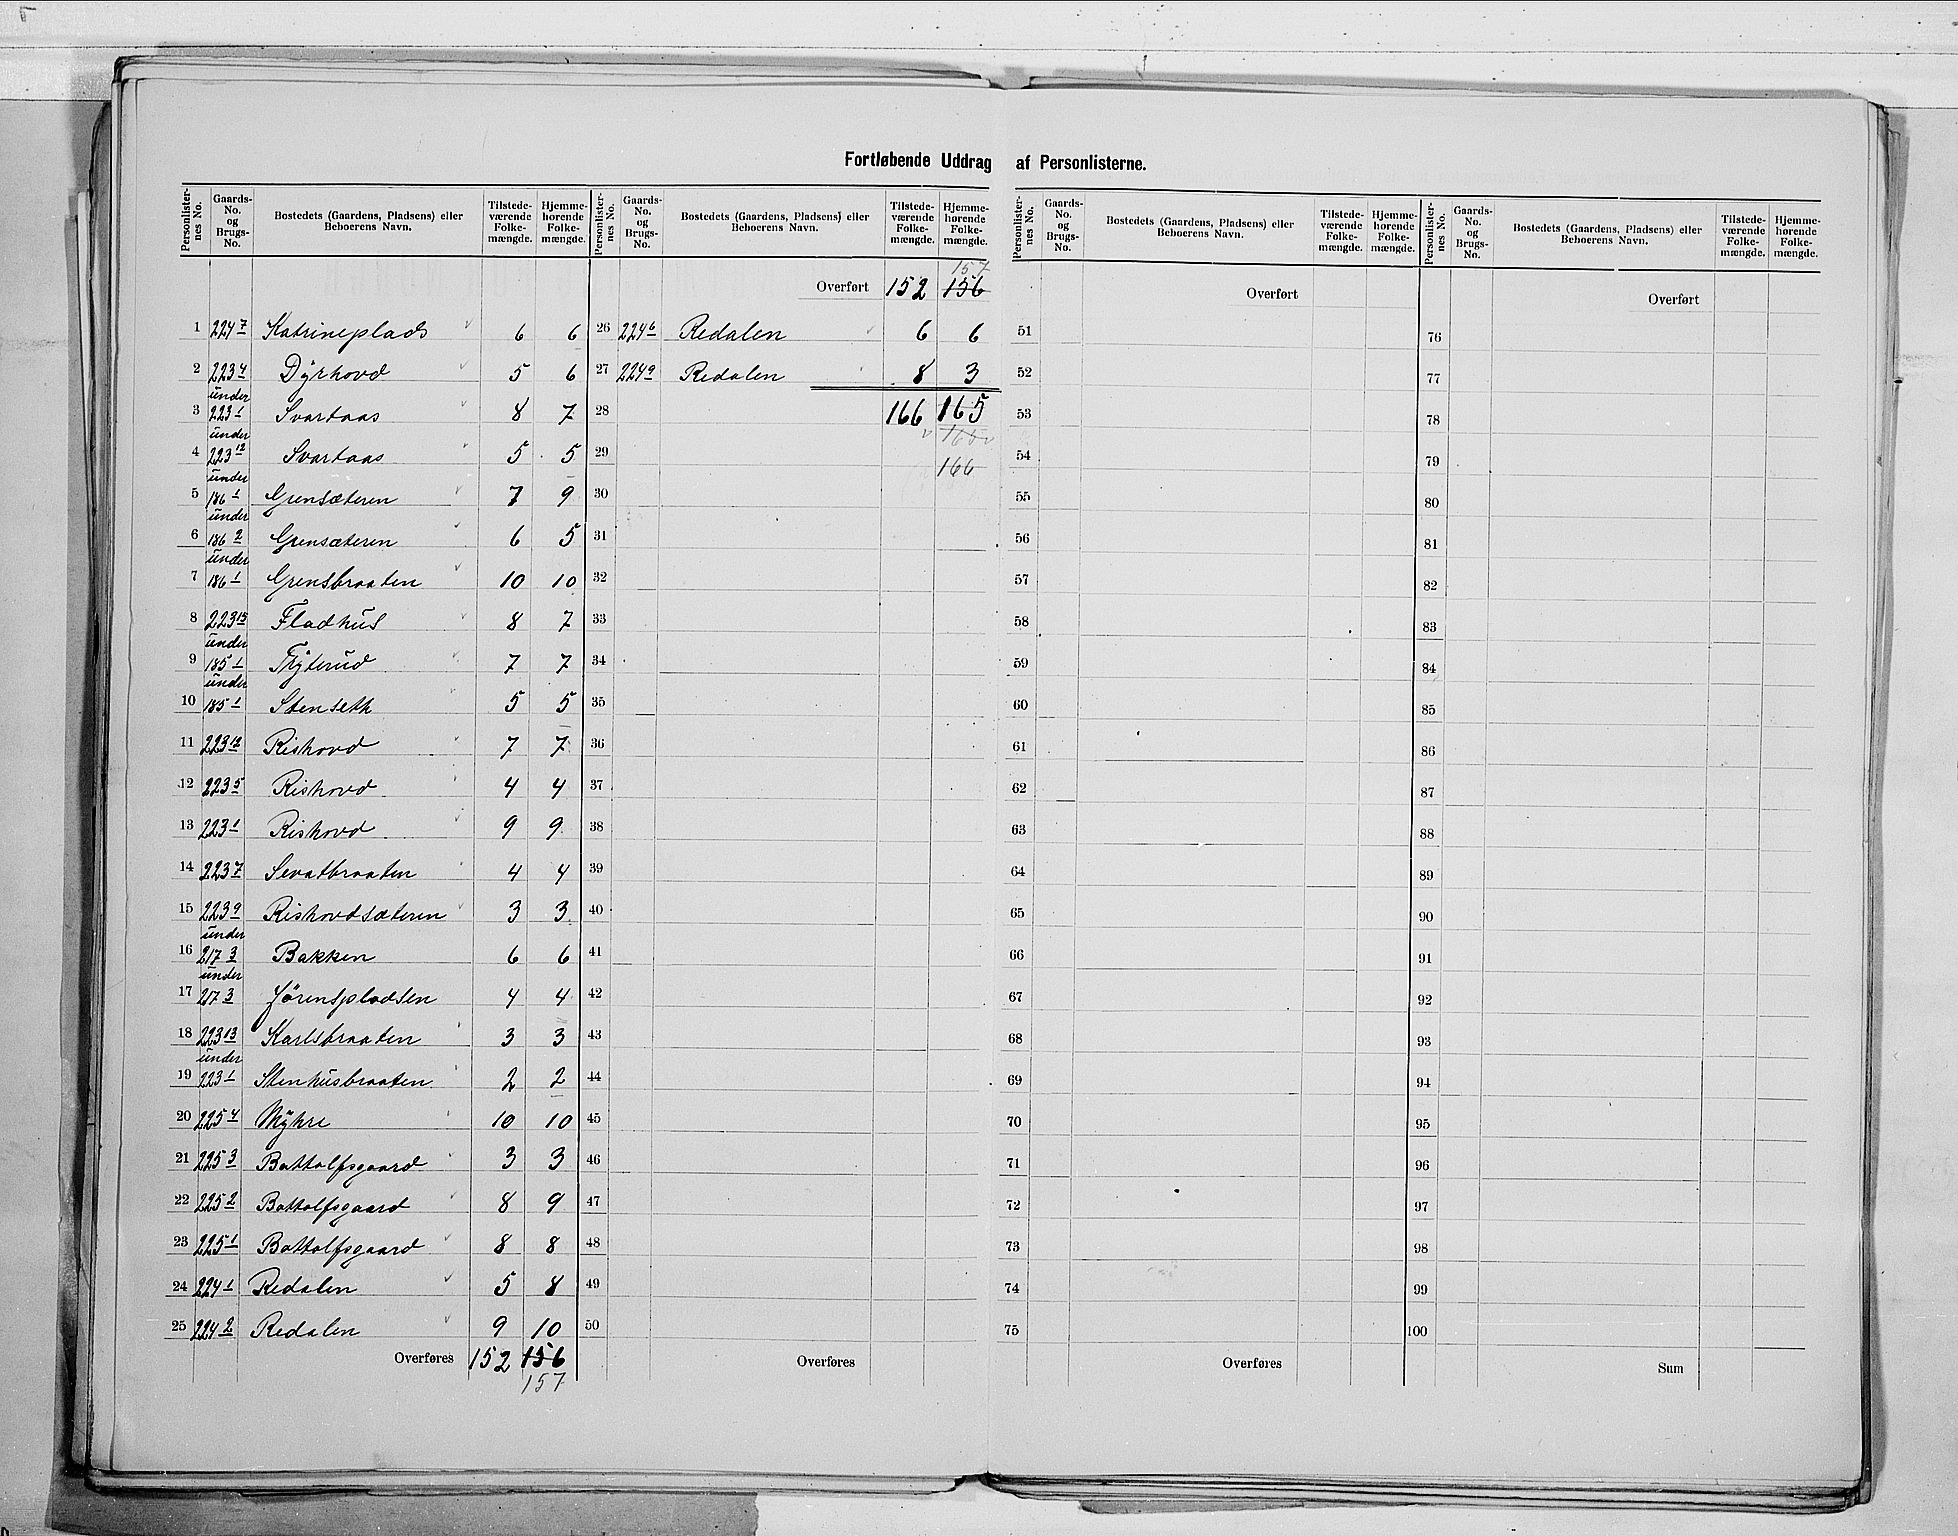 Fortløbende Uddrag af Personlisterne.
Personlisternes No. Gaards-No. og Brugs-No. Bostedets (Gaardens, Pladsens) eller Beboerens Navn. Tilstedeværende Folkemængde. Hjemmehørende Folkemængde.
1 224 7 Katrineplads 6 6
2 223 4 Dÿrhovd 5 6
3 under 223 1 Svartaas 8 7
4 under 223 12 Svartaas 5 5
5 under 186 1 Grensæteren 7 9
6 under 186 2 Grensæteren 6 5
7 under 186 1 Grensbraaten 10 10
8 223 15 Fladhus 8 7
9 under 185 1 Trÿterud 7 7
10 under 185 1 Stenseth 5 5
11 223 12 Rishovd 7 7
12 223 5 Rishovd 4 4
13 223 1 Rishovd 9 9
14 223 7 Sevatbraaten 4 4
15 223 9 Rishovdsæteren 3 3
16 under 217 3 Bakken 6 6
17 under 217 3 Jørenspladsen 4 4
18 223 13 Karlsbraaten 3 3
19 under 223 1 Stenhusbraaten 2 2
20 225 4 Mÿhre 10 10
21 225 3 Bottolfsgaard 3 3
22 225 2 Bottolfsgaard 8 9
23 225 1 Bottolfsgaard 8 8
24 224 1 Redalen 5 8
25 224 2 Redalen 9 10
Overføres 152 156
157
Personlisternes No. Gaards-No. og Brugs-No. Bostedets (Gaardens, Pladsens) eller Beboerens Navn. Tilstedeværende Folkemængde. Hjemmehørende Folkemængde.
157
Overført 152 156
26 224 6 Redalen 6 6
27 224 9 Redalen 8 3
28 166 165
29 165
166
30
31
32
33
34
35
36
37
38
39
40
41
42
43
44
45
46
47
48
49
50
Overføres
Personlisternes No. Gaards-No. og Brugs-No. Bostedets (Gaardens, Pladsens) eller Beboerens Navn. Tilstedeværende Folkemængde. Hjemmehørende Folkemængde.
Overført
51
52
53
54
55
56
57
58
59
60
61
62
63
64
65
66
67
68
69
70
71
72
73
74
75
Overføres
Personlisternes No. Gaards-No. og Brugs-No. Bostedets (Gaardens, Pladsens) eller Beboerens Navn. Tilstedeværende Folkemængde. Hjemmehørende Folkemængde.
Overført
76
77
78
79
80
81
82
83
84
85
86
87
88
89
90
91
92
93
94
95
96
97
98
99
100
Sum